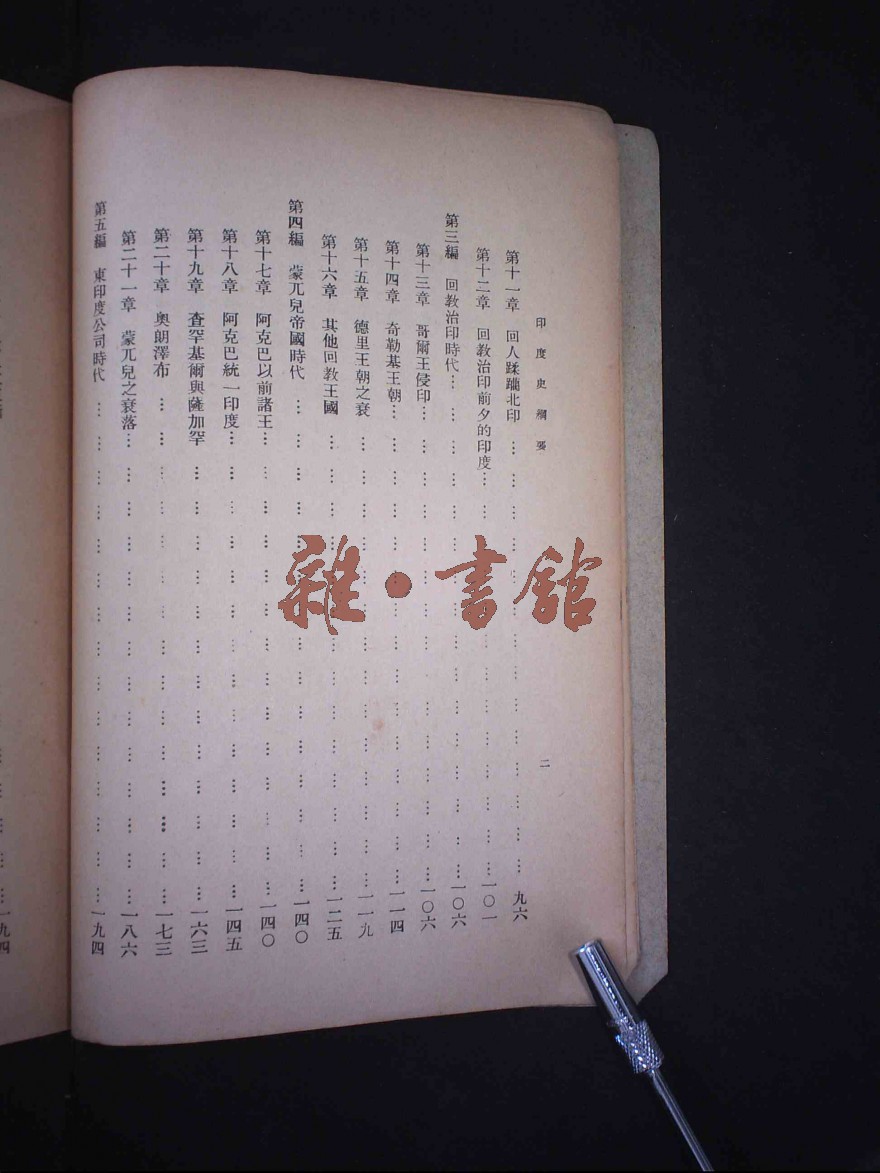 印度史綱要
二
第十一章 回人蹂躪北印 … … … … … … … … … … … … … … … 九六
第十二章 回教治印前夕的印度… … … … … … … … … … … … … …一〇一
第三編 回教治印時代… … … … … … … … … … … … … … … … 一〇六
第十三章 哥爾王侵印… … … … … … … … … … … … … … … …一〇六
第十四章 奇勒基王朝… … … … … … … … … … … … … … … …一一四
第十五章 德里王朝之衰 … … … … … … … … … … … … … … …一一九
第十六章 其他回教王國 … … … … … … … … … … … … … … …一二五
第四編 蒙兀兒帝國時代 … … … … … … … … … … … … … … …一四〇
第十七章 阿克巴以前諸王… … … … … … … … … … … … … … …一四〇
第十八章 阿克巴統一印度… … … … … … … … … … … … … … …一四五
第十九章 查罕基爾與薩加罕 … … … … … … … … … … … … … …一六三
第二十章 奧朗澤布 … … … … … … … … … … … … … … … …一七三
第二十一章 蒙兀兒之衰落… … … … … … … … … … … … … … …一八六
第五編 東印度公司時代 … … … … … … … … … … … … … … …一九四
雜·書館